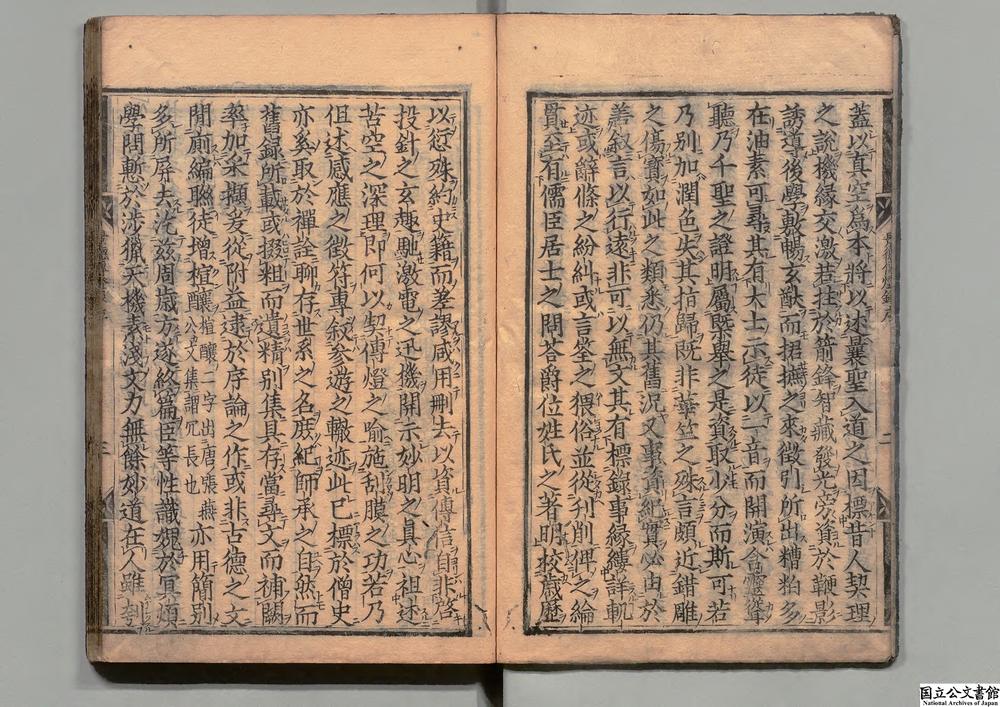 蓋以真空爲本將以述曩聖入道之因標昔人契理
之說機緣交激若拄於箭鋒智藏發光旁資於鞭影
誘道後學敷暢玄猷而捃摭之來徵引所出糟粕多
在油素可尋其有大士示徒以一音而開演含靈聳
聽乃千聖之證明屬槩舉之是資取少分而斯可若
乃別加潤色失其指歸既非華竺之殊言頗近錯雕
之傷寶如此之類悉仍其舊況又事資紀實必由於
善叙言以行遠非可以無文其有標錄事緣縷詳軌
迹或辭條之紛糾或言筌之猥俗並從刊削俾之綸
貫至有儒臣居士之問答爵位姓氏之著明校歲歷
二
以愆殊約史籍而差謬咸用刪去以資傳信自非啓
投針之玄趣馳激電之迅機開示妙明之真心祖述
苦空之深理即何以契傳燈之喻施刮膜之功若乃
但述感應之徵符專叙參遊之轍迹此已標於僧史
亦奚取於禪詮聊存世系之名庶紀師承之自然而
舊錄所載或掇粗而遺精別集具存當尋文而補闕
率加采擷爰從附益逮於序論之作或非古德之文
間廁編聯徒增楦釀楦釀二字出唐張燕公文集謂冗長也亦用簡別
多所屏去汔茲周歲方遂終篇臣等性識媿於冥煩
學問慙於涉獵天機素淺文力無餘妙道在人雖刳
三
国立公文書館
National Archives of Japan